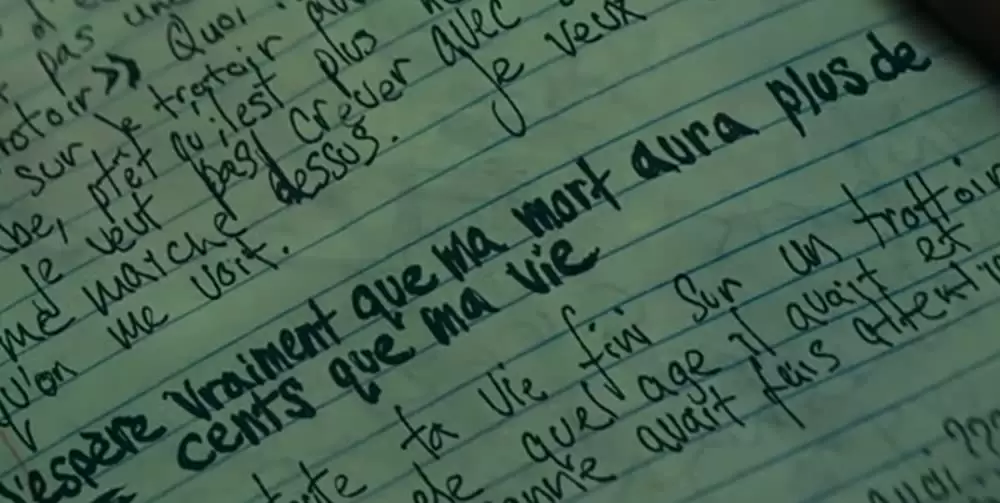 pas un
rotoir>> Quoi
sur le trotoir
be, ptet qu'il est plus
je veut pas crever avec
me marche dessus. je veux
qu'on me voit.
J'espère vraiment que ma mort aura plus de
cents que ma vie
ta vie fini sur un trottoir
quel age il avait et
avait fais attenti
???